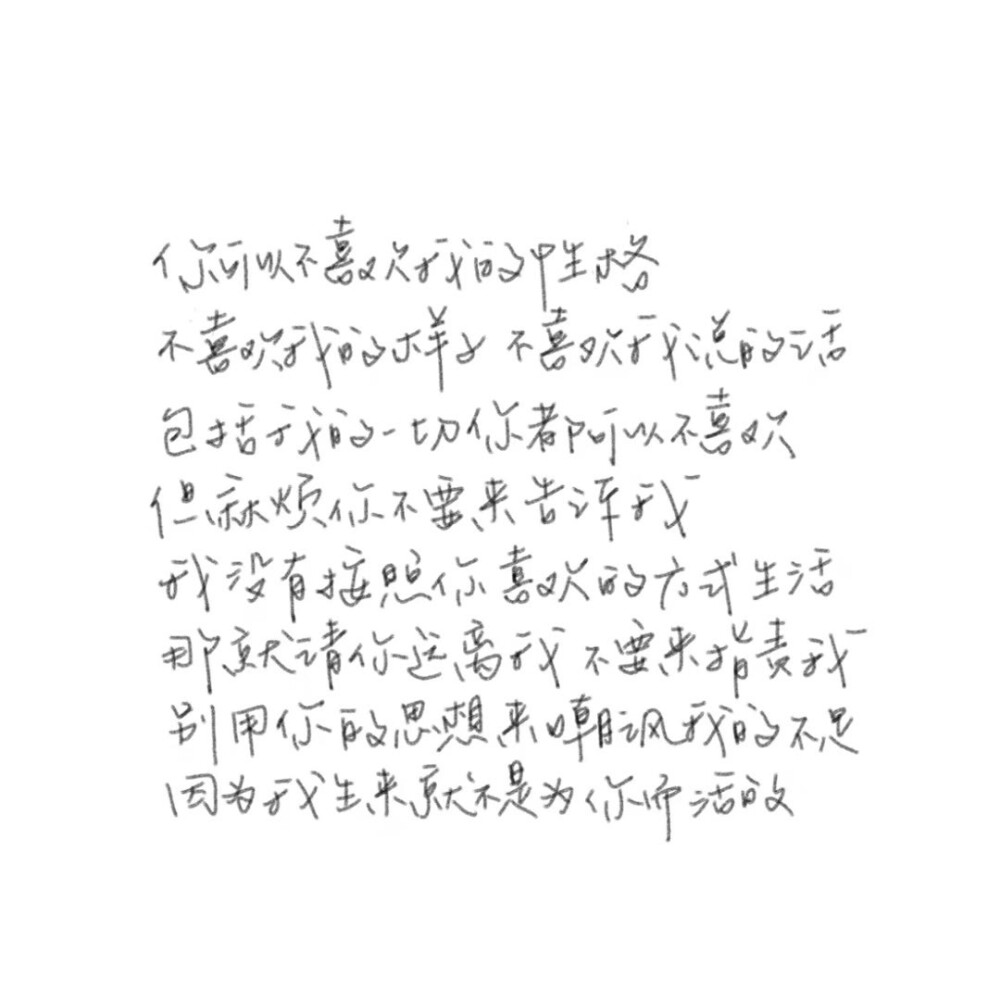 你可以不喜欢我的性格
不喜欢我的样子 不喜欢我说的话
包括我的一切你都可以不喜欢
但麻烦你不要来告诉我
我没有按照你喜欢的方式生活
那就请你远离我 不要来指责我
别用你的思想来嘲讽我的不足
因为我生来就不是为你而活的